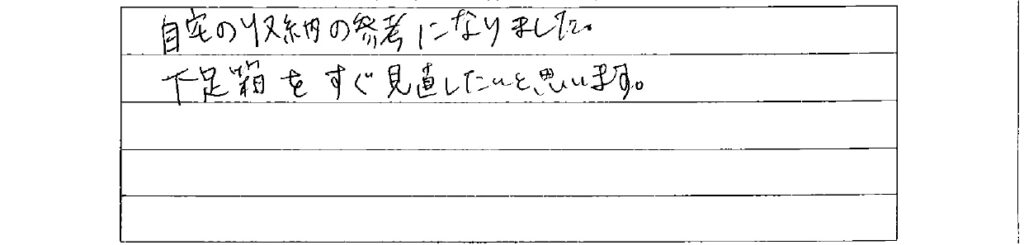 自宅の収納の参考になりました。
下足箱をすぐ見直したいと思います。